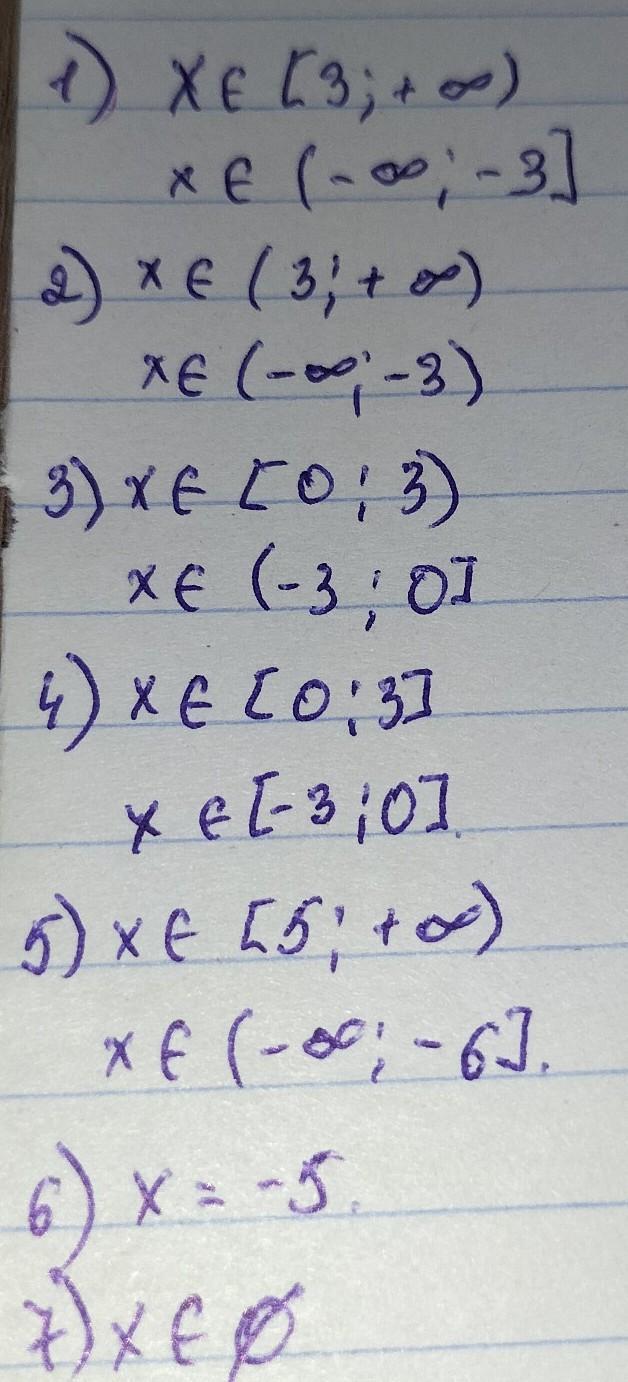 1) x ∈ [3; +∞)
x ∈ (-∞; -3]
2) x ∈ (3; +∞)
x ∈ (-∞; -3)
3) x ∈ [0; 3)
x ∈ (-3; 0]
4) x ∈ [0; 3]
x ∈ [-3; 0].
5) x ∈ [5; +∞)
x ∈ (-∞; -6].
6) x = -5.
7) x ∈ ∅